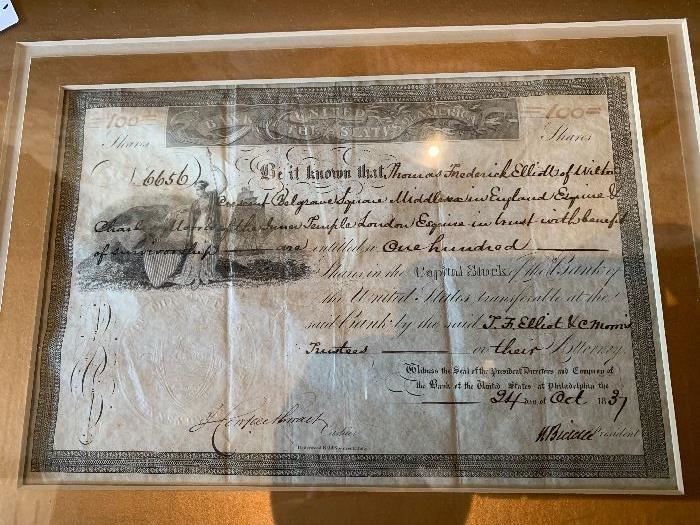 =100= BANK OF THE UNITED STATES OF AMERICA =100=
Shares Shares
(6656) Be it known that, Thomas Frederick Elliott of Wilton
Crescent Belgrave Square Middlesex in England Esquire &
Charles Morris of the Inner Temple London Esquire in trust with benefit
of survivorship are entitled to One hundred
Shares in the Capital Stock of the Bank of
the United States transferable at the
said Bank by the said T. F. Elliot & C Morris
Trustees or their Attorney
Witness the Seal of the President Directors and Company of
the Bank of the United States at Philadelphia the
24 day of Oct 1837
Cashier N Biddle President